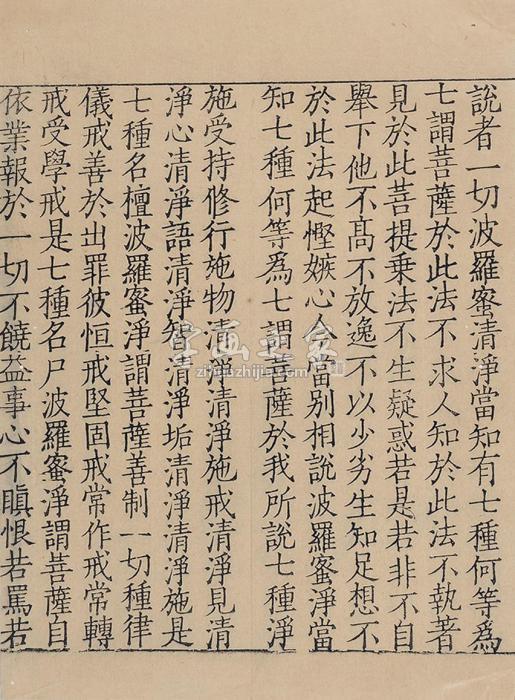 說者一切波羅蜜清淨當知有七種何等爲
七謂菩薩於此法不求人知於此法不執著
見於此菩提乘法不生疑惑若是若非不自
舉下他不髙不放逸不以少劣生知足想不
於此法起慳嫉心今當別相說波羅蜜淨當
知七種何等爲七謂菩薩於我所說七種淨
施受持修行施物清淨清淨施戒清淨見清
淨心清淨語清淨智清淨垢清淨清淨施是
七種名檀波羅蜜淨謂菩薩善制一切種律
儀戒善於出罪彼恒戒堅固戒常作戒常轉
戒受學戒是七種名尸波羅蜜淨謂菩薩自
依業報於一切不饒益事心不瞋恨若罵若